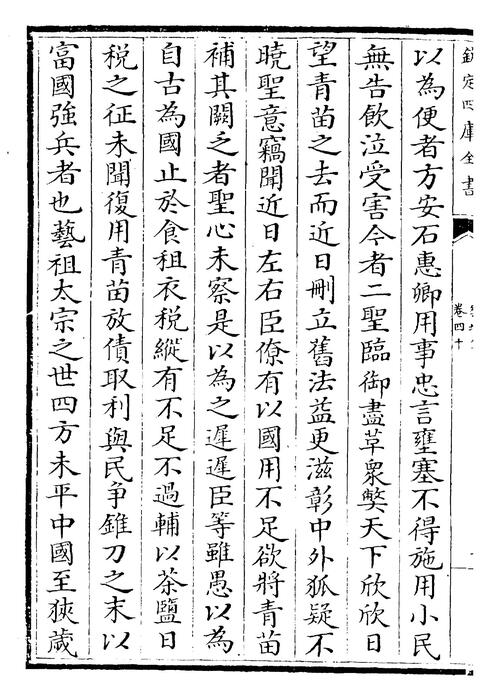 欽定四庫全書
卷四十
以為便者方安石惠卿用事忠言壅塞不得施用小民
無告飲泣受害今者二聖臨御盡革衆弊天下欣欣日
望青苗之去而近日刪立舊法益更滋彰中外狐疑不
曉聖意竊聞近日左右臣僚有以國用不足欲將青苗
補其闕乏者聖心未察是以為之遲遲臣等雖愚以為
自古為國止於食租衣税縱有不足不過輔以茶鹽日
税之征未聞復用青苗放債取利與民争錐刀之末以
富國強兵者也藝祖太宗之世四方未平中國至狹歲